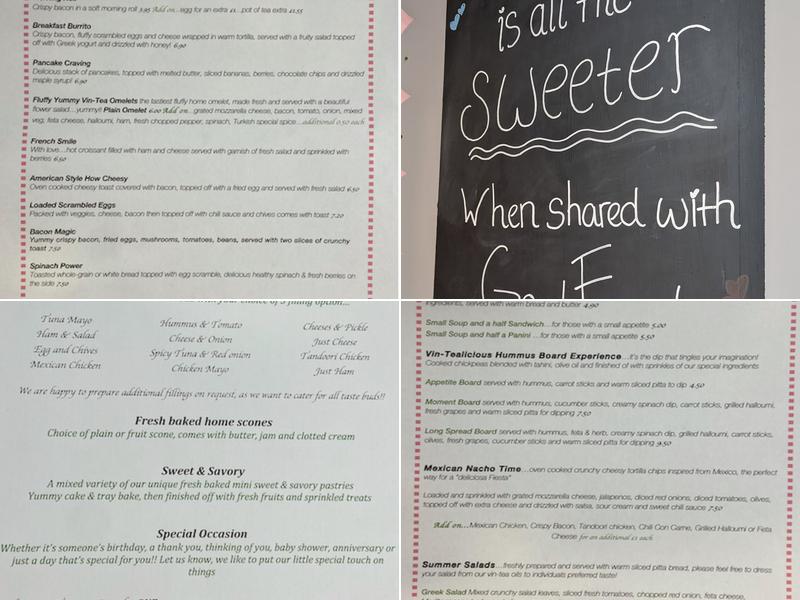 Crispy bacon in a soft morning roll 3.95 Add on...egg for an extra £1...pot of tea extra £1.55
Breakfast Burrito
Crispy bacon, fluffy scrambled eggs and cheese wrapped in warm tortilla, served with a fruity salad topped
off with Greek yogurt and drizzled with honey! 6.90
Pancake Craving
Delicious stack of pancakes, topped with melted butter, sliced bananas, berries, chocolate chips and drizzled
maple syrup! 6.90
Fluffy Yummy Vin-Tea Omelets the tastiest fluffy home omelet, made fresh and served with a beautiful
flower salad...yummy!! Plain Omelet 6.00 Add on...grated mozzarella cheese, bacon, tomato, onion, mixed
veg, feta cheese, halloumi, ham, fresh chopped pepper, spinach, Turkish special spice...additional 0.50 each
French Smile
With love...hot croissant filled with ham and cheese served with garnish of fresh salad and sprinkled with
berries 6.50
American Style How Cheesy
Oven cooked cheesy toast covered with bacon, topped off with a fried egg and served with fresh salad 6.50
Loaded Scrambled Eggs
Packed with veggies, cheese, bacon then topped off with chili sauce and chives comes with toast 7.20
Bacon Magic
Yummy crispy bacon, fried eggs, mushrooms, tomatoes, beans, served with two slices of crunchy
toast 7.50
Spinach Power
Toasted whole-grain or white bread topped with egg scramble, delicious healthy spinach & fresh berries on
the side 7.50
is all the
Sweeter
When shared with
with your choice of 3 filling option...
Tuna Mayo
Ham & Salad
Egg and Chives
Mexican Chicken
Hummus & Tomato
Cheese & Onion
Spicy Tuna & Red onion
Chicken Mayo
Cheese & Pickle
Just Cheese
Tandoori Chicken
Just Ham
We are happy to prepare additional fillings on request, as we want to cater for all taste buds!!
Fresh baked home scones
Choice of plain or fruit scone, comes with butter, jam and clotted cream
Sweet & Savory
A mixed variety of our unique fresh baked mini sweet & savory pastries
Yummy cake & tray bake, then finished off with fresh fruits and sprinkled treats
Special Occasion
Whether it's someone's birthday, a thank you, thinking of you, baby shower, anniversary or
just a day that's special for you!! Let us know, we like to put our little special touch on
things
ingredients, served with warm bread and butter 4.90
Small Soup and a half Sandwich...for those with a small appetite 5.00
Small Soup and half a Panini ...for those with a small appetite 5.50
Vin-Tealicious Hummus Board Experience...it's the dip that tingles your imagination!
Cooked chickpeas blended with tahini, olive oil and finished of with sprinkles of our special ingredients
Appetite Board served with hummus, carrot sticks and warm sliced pitta to dip 4.50
Moment Board served with hummus, cucumber sticks, creamy spinach dip, carrot sticks, grilled halloumi,
fresh grapes and warm sliced pitta for dipping 7.50
Long Spread Board served with hummus, feta & herb, creamy spinach dip, grilled halloumi, carrot sticks,
olives, fresh grapes, cucumber sticks and warm sliced pitta for dipping 9.50
Mexican Nacho Time...oven cooked crunchy cheesy tortilla chips inspired from Mexico, the perfect
way for a "deliciosa Fiesta"
Loaded and sprinkled with grated mozzarella cheese, jalapenos, diced red onions, diced tomatoes, olives,
topped off with extra cheese and drizzled with salsa, sour cream and sweet chili sauce 7.50
Add on...Mexican Chicken, Crispy Bacon, Tandoori chicken, Chili Con Carne, Grilled Halloumi or Feta
Cheese for an additional £1 each
Summer Salads...freshly prepared and served with warm sliced pitta bread, please feel free to dress
your salad from our vin-tea oils to individuals preferred taste!
Greek Salad Mixed crunchy salad leaves, sliced fresh tomatoes, chopped red onion, feta cheese,